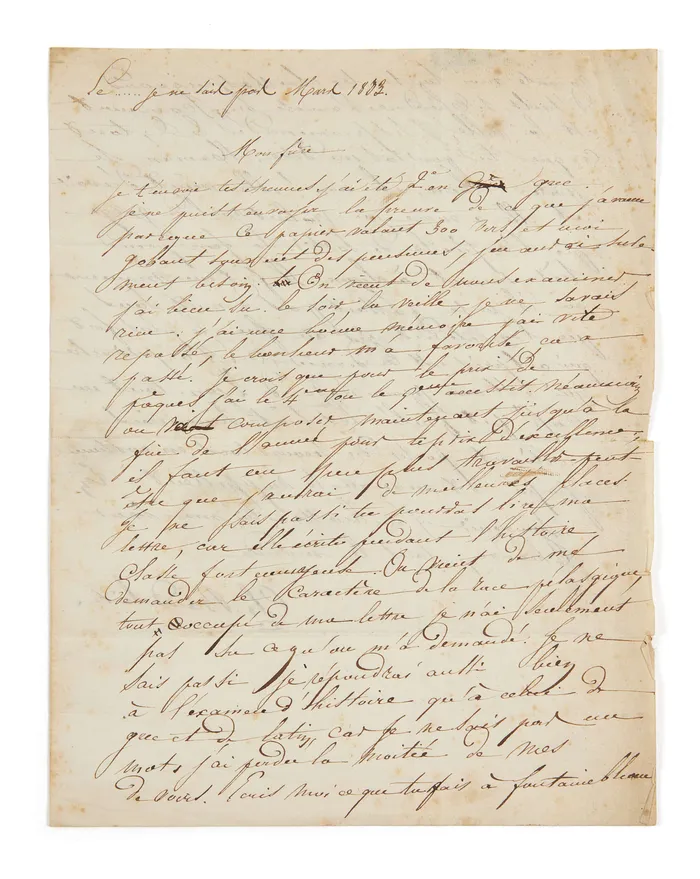 Le ...... je ne sais pas Mars 1833.
Mon frère
je t'envoie tes étrennes j'ai été 2e en grec que
je ne puis t'envoyer la preuve de ce que j'avance
parce que ce papier valant 300 vers et moi
gobant souvent des pensums, j'en aurai seule
ment besoin. On vient de nous examiner
j'ai bien su. le soir la veille, je ne savais
rien. j'ai une bonne mémoire j'ai vite
repassé, le bonheur m'a favorisé, ça a
passé. je crois que pour le prix de
pâques j'ai le 4ème ou le 5ème accessit néanmoins
on composer maintenant jusqu'à la
fin de l'année pour le prix d'excellence,
il faut un peu plus travailler peut
être que j'aurai de meilleures places.
Je ne sais pas si tu pourras lire ma
lettre, car elle écrite pendant l'histoire
classe fort ennuyeuse. On vient de me
demander le caractère de la race pelasgique,
tout occupé de ma lettre je n'ai seulement
pas su ce qu'on m'a demandé. Je ne
sais pas si je répondrai aussi bien
à l'examen d'histoire qu'à celui de
grec et de latin, car je ne sais pas un
mots j'ai perdu la moitié de mes
devoirs. Ecris moi ce que tu fais à fontainebleau